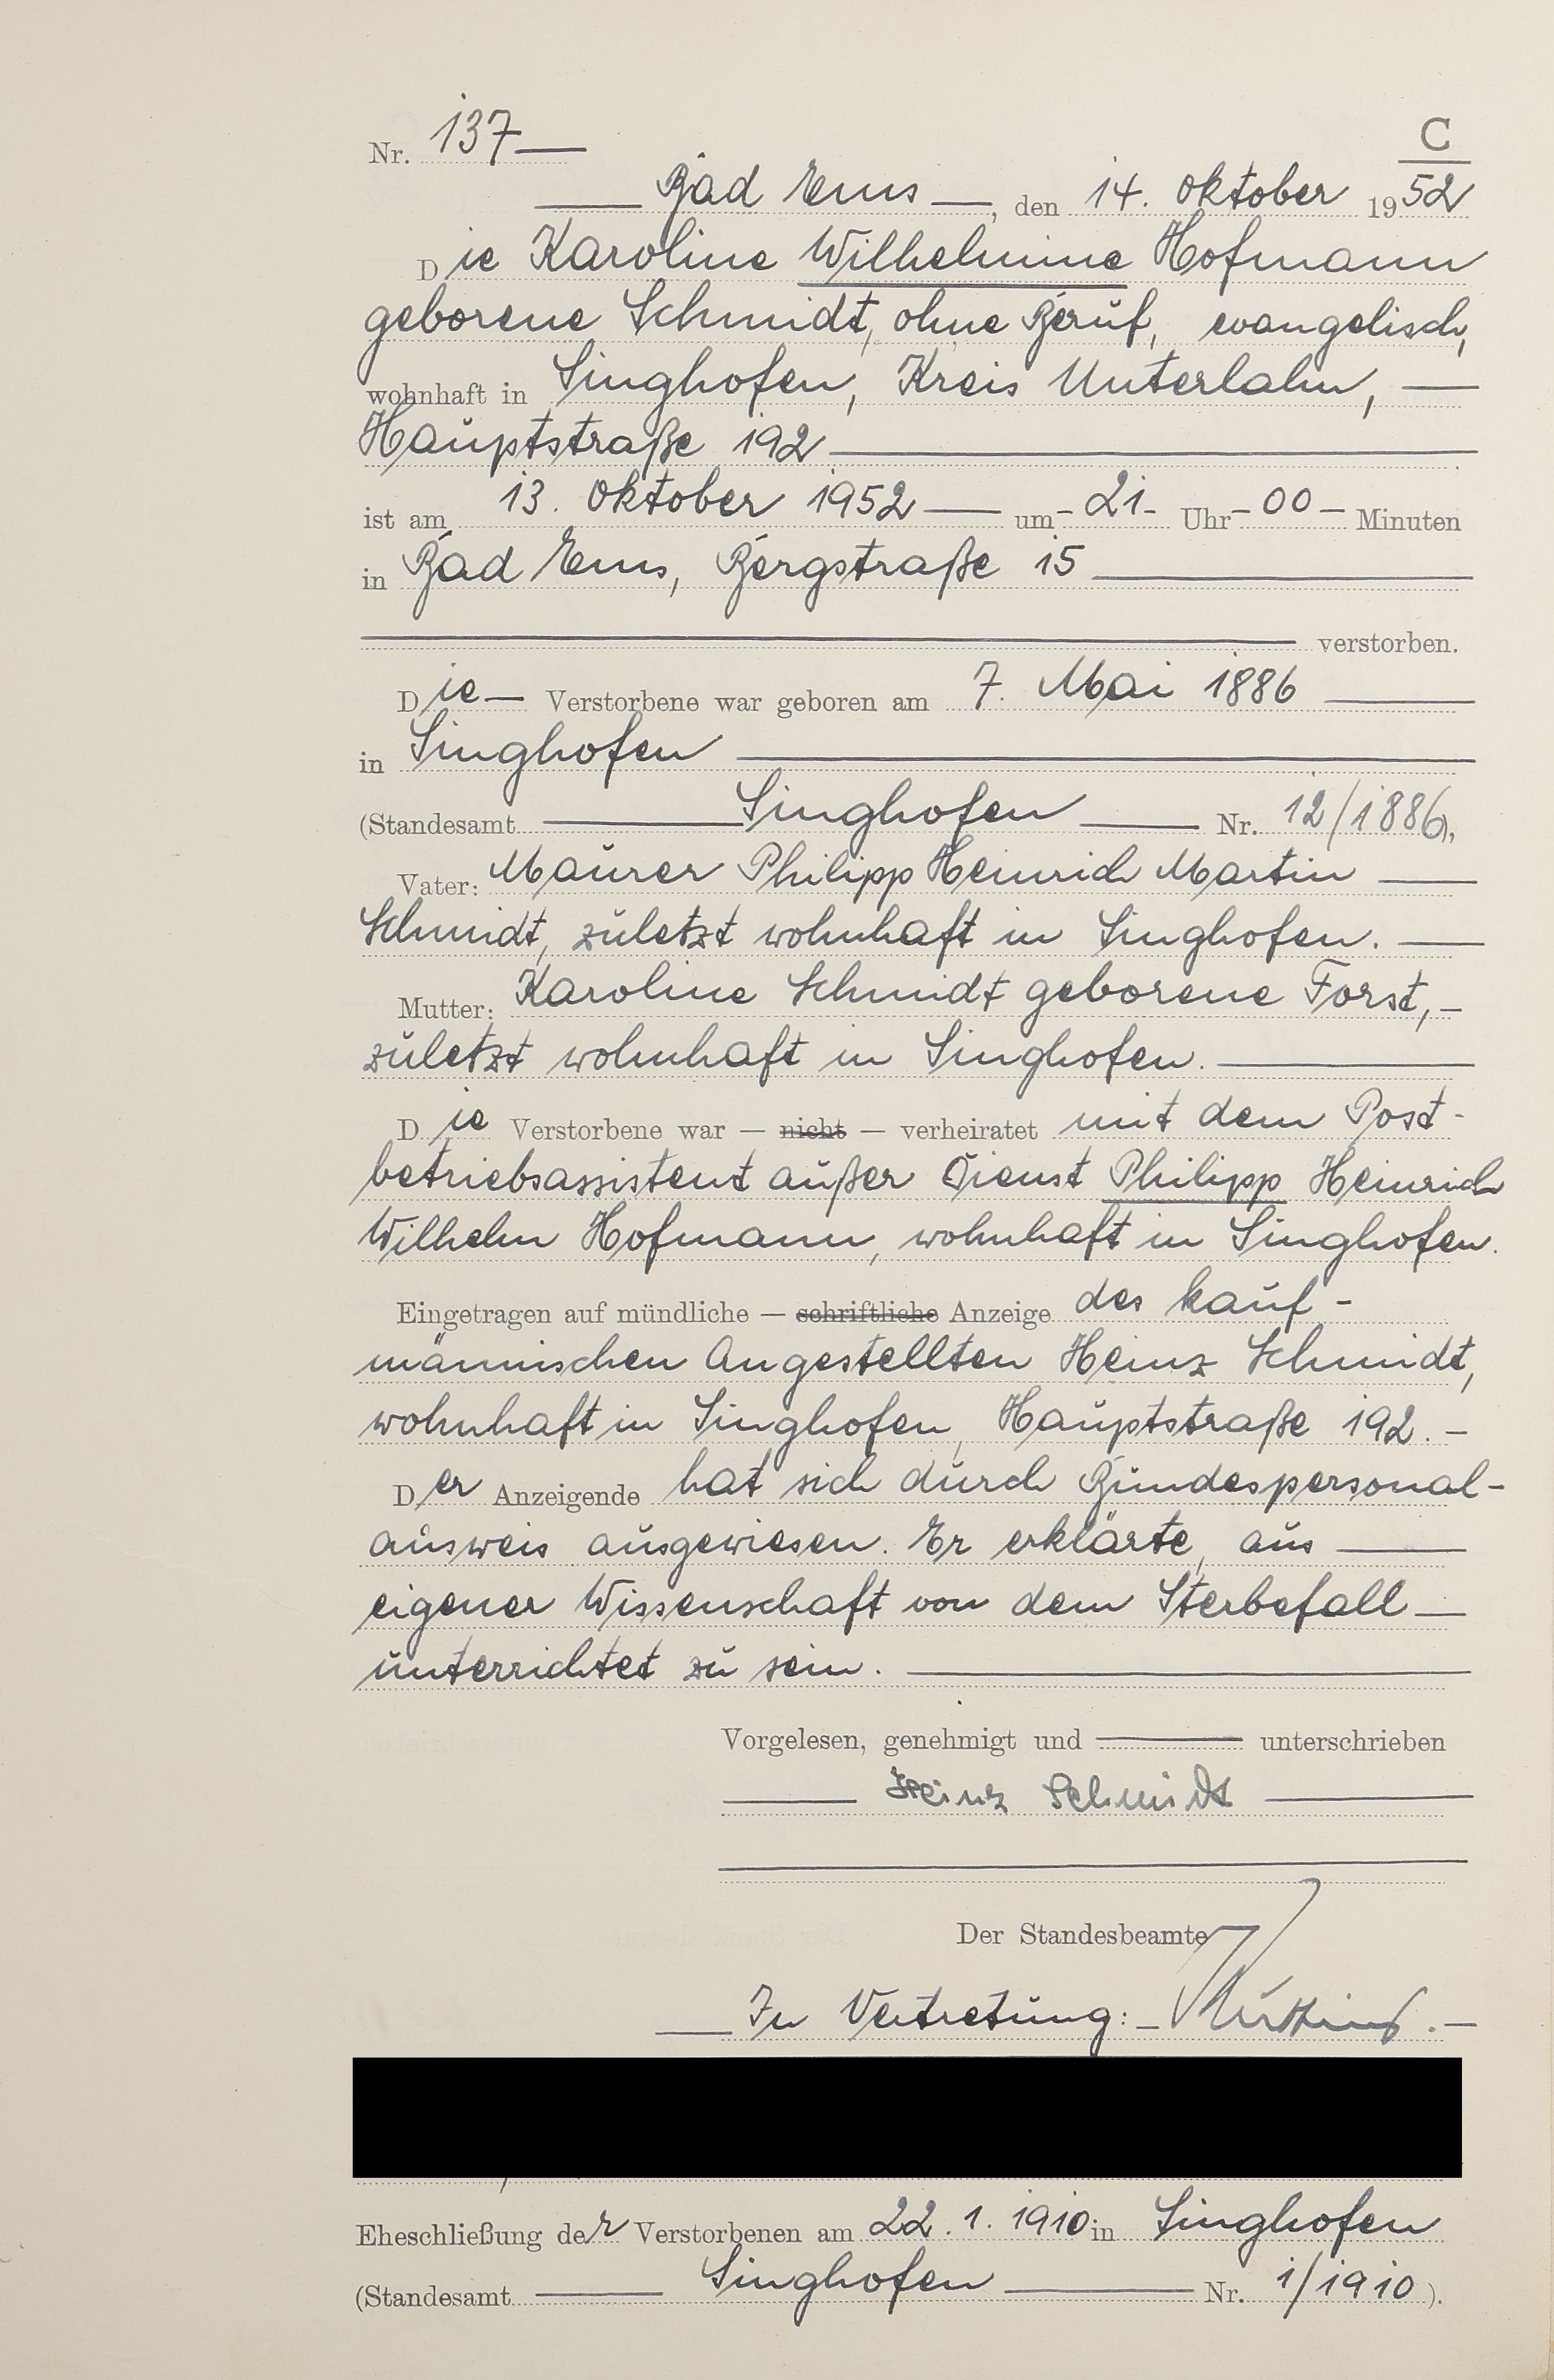 C
Nr. 137
Bad Ems, den 14. Oktober 1952
Die Karoline Wilhelmine Hofmann
geborene Schmidt, ohne Beruf, evangelisch,
wohnhaft in Singhofen, Kreis Unterlahn,
Hauptstraße 192
ist am 13. Oktober 1952 um 21 Uhr 00 Minuten
in Bad Ems, Bergstraße 15
verstorben.
Die Verstorbene war geboren am 7. Mai 1886
in Singhofen
(Standesamt Singhofen Nr. 12/1886),
Vater: Maurer Philipp Heinrich Martin
Schmidt, zuletzt wohnhaft in Singhofen.
Mutter: Karoline Schmidt geborene Forst,
zuletzt wohnhaft in Singhofen.
Die Verstorbene war — nicht — verheiratet mit dem Post-
betriebsassistent außer Dienst Philipp Heinrich
Wilhelm Hofmann, wohnhaft in Singhofen.
Eingetragen auf mündliche — schriftliche Anzeige des kauf-
männischen Angestellten Heinz Schmidt,
wohnhaft in Singhofen, Hauptstraße 192.
Der Anzeigende hat sich durch Bundespersonal-
ausweis ausgewiesen. Er erklärte, aus
eigener Wissenschaft von dem Sterbefall
unterrichtet zu sein.
Vorgelesen, genehmigt und unterschrieben
Heinz Schmidt
Der Standesbeamte
In Vertretung:
Eheschließung der Verstorbenen am 22. 1. 1910 in Singhofen
(Standesamt Singhofen Nr. 1/1910).